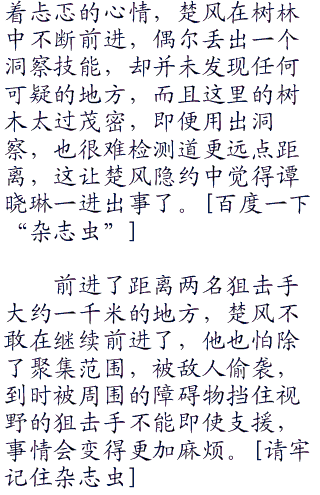 着忐忑的心情，楚风在树林
中不断前进，偶尔丢出一个
洞察技能，却并未发现任何
可疑的地方，而且这里的树
木太过茂密，即便用出洞
察，也很难检测道更远点距
离，这让楚风隐约中觉得谭
晓琳一进出事了。[百度一下
“杂志虫”]
前进了距离两名狙击手
大约一千米的地方，楚风不
敢在继续前进了，他也怕除
了聚集范围，被敌人偷袭，
到时被周围的障碍物挡住视
野的狙击手不能即使支援，
事情会变得更加麻烦。[请牢
记住杂志虫]